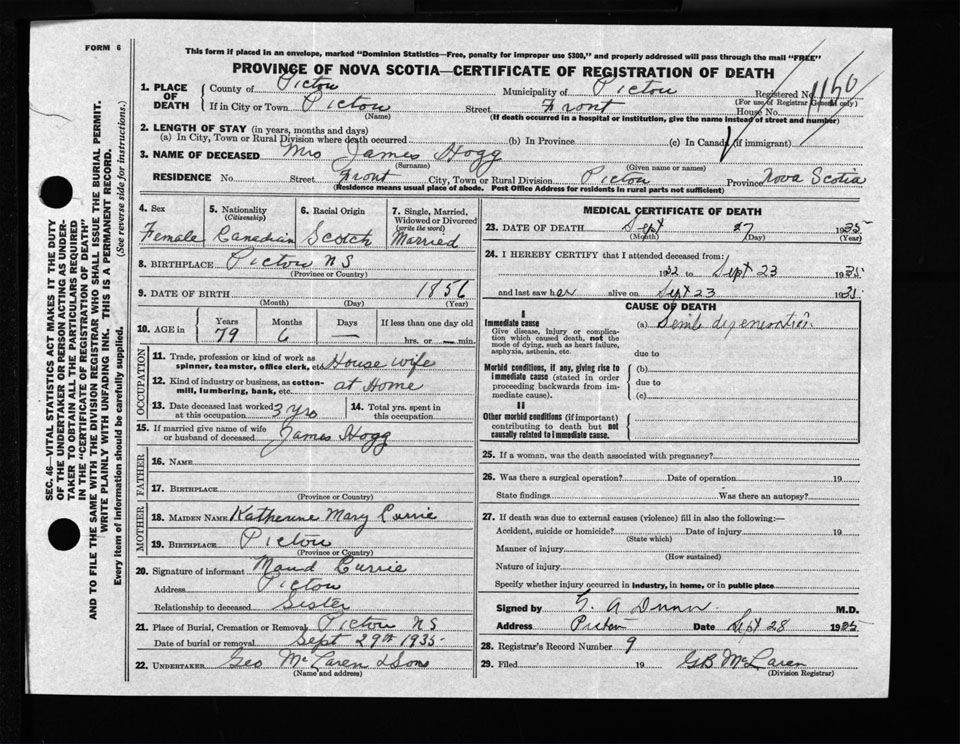 FORM 6
This form if placed in an envelope, marked "Dominion Statistics—Free, penalty for improper use $300," and properly addressed will pass through the mail "FREE"
PROVINCE OF NOVA SCOTIA—CERTIFICATE OF REGISTRATION OF DEATH
1. PLACE OF DEATH
County of Pictou Municipality of Pictou Registered No. 1150
(For use of Registrar General only)
If in City or Town Pictou Street Front House No.
(Name) (If death occurred in a hospital or institution, give the name instead of street and number)
2. LENGTH OF STAY (in years, months and days)
(a) In City, Town or Rural Division where death occurred (b) In Province (c) In Canada (if immigrant)
3. NAME OF DECEASED Mrs James Hogg
(Surname) (Given name or names)
RESIDENCE No. Street Front City, Town or Rural Division Pictou Province Nova Scotia
(Residence means usual place of abode. Post Office Address for residents in rural parts not sufficient)
4. Sex
Female
5. Nationality (Citizenship)
Canadian
6. Racial Origin
Scotch
7. Single, Married, Widowed or Divorced (write the word)
Married
8. BIRTHPLACE Pictou N S
(Province or Country)
9. DATE OF BIRTH 1856
(Month) (Day) (Year)
10. AGE in Years Months Days If less than one day old
79 6 — hrs. or — min.
OCCUPATION
11. Trade, profession or kind of work as spinner, teamster, office clerk, etc. House wife
12. Kind of industry or business, as cotton-mill, lumbering, bank, etc. at Home
13. Date deceased last worked at this occupation 3 yrs
14. Total yrs. spent in this occupation
15. If married give name of wife or husband of deceased James Hogg
FATHER
16. NAME
17. BIRTHPLACE
(Province or Country)
MOTHER
18. MAIDEN NAME Katherine Mary Currie
19. BIRTHPLACE Pictou
(Province or Country)
20. Signature of informant Maud Currie
Address Pictou
Relationship to deceased Sister
21. Place of Burial, Cremation or Removal Pictou N S
Date of burial or removal Sept 29th 1935
22. UNDERTAKER Geo McLaren & Sons
(Name and address)
MEDICAL CERTIFICATE OF DEATH
23. DATE OF DEATH Sept 27 1935
(Month) (Day) (Year)
24. I HEREBY CERTIFY that I attended deceased from:
1932 to Sept 23 1935
and last saw her alive on Sept 23 1935
CAUSE OF DEATH
I
Immediate cause
Give disease, injury or complication which caused death, not the mode of dying, such as heart failure, asphyxia, asthenia, etc.
(a) Senile degeneration
due to
Morbid conditions, if any, giving rise to immediate cause (stated in order proceeding backwards from immediate cause).
(b)
due to
(c)
II
Other morbid conditions (if important) contributing to death but not causally related to immediate cause.
25. If a woman, was the death associated with pregnancy?
26. Was there a surgical operation? Date of operation 19
State findings Was there an autopsy?
27. If death was due to external causes (violence) fill in also the following:—
Accident, suicide or homicide? Date of injury 19
(State which)
Manner of injury
(How sustained)
Nature of injury
Specify whether injury occurred in industry, in home, or in public place
Signed by G. A Dunn M.D.
Address Pictou Date Sept 28 1935
28. Registrar's Record Number 9
29. Filed 19 GB McLaren
(Division Registrar)
SEC. 46—VITAL STATISTICS ACT MAKES IT THE DUTY
OF THE UNDERTAKER OR PERSON ACTING AS UNDER-
TAKER TO OBTAIN ALL THE PARTICULARS REQUIRED
IN THE "CERTIFICATE OF REGISTRATION OF DEATH"
AND TO FILE THE SAME WITH THE DIVISION REGISTRAR WHO SHALL ISSUE THE BURIAL PERMIT.
WRITE PLAINLY WITH UNFADING INK. THIS IS A PERMANENT RECORD.
Every item of information should be carefully supplied. (See reverse side for instructions.)